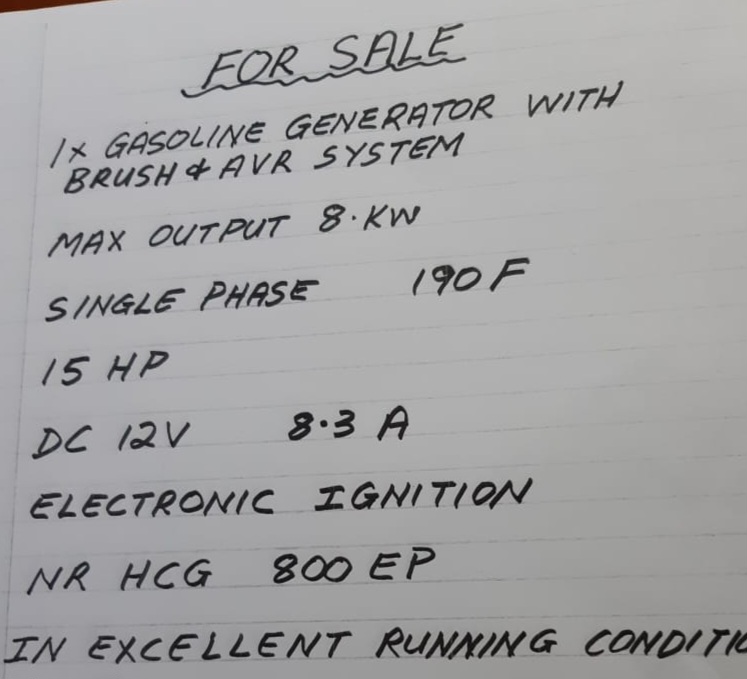 FOR SALE
1x GASOLINE GENERATOR WITH
BRUSH & AVR SYSTEM
MAX OUTPUT 8.KW
SINGLE PHASE 190F
15 HP
DC 12V 8.3 A
ELECTRONIC IGNITION
NR HCG 800 EP
IN EXCELLENT RUNNING CONDITIO